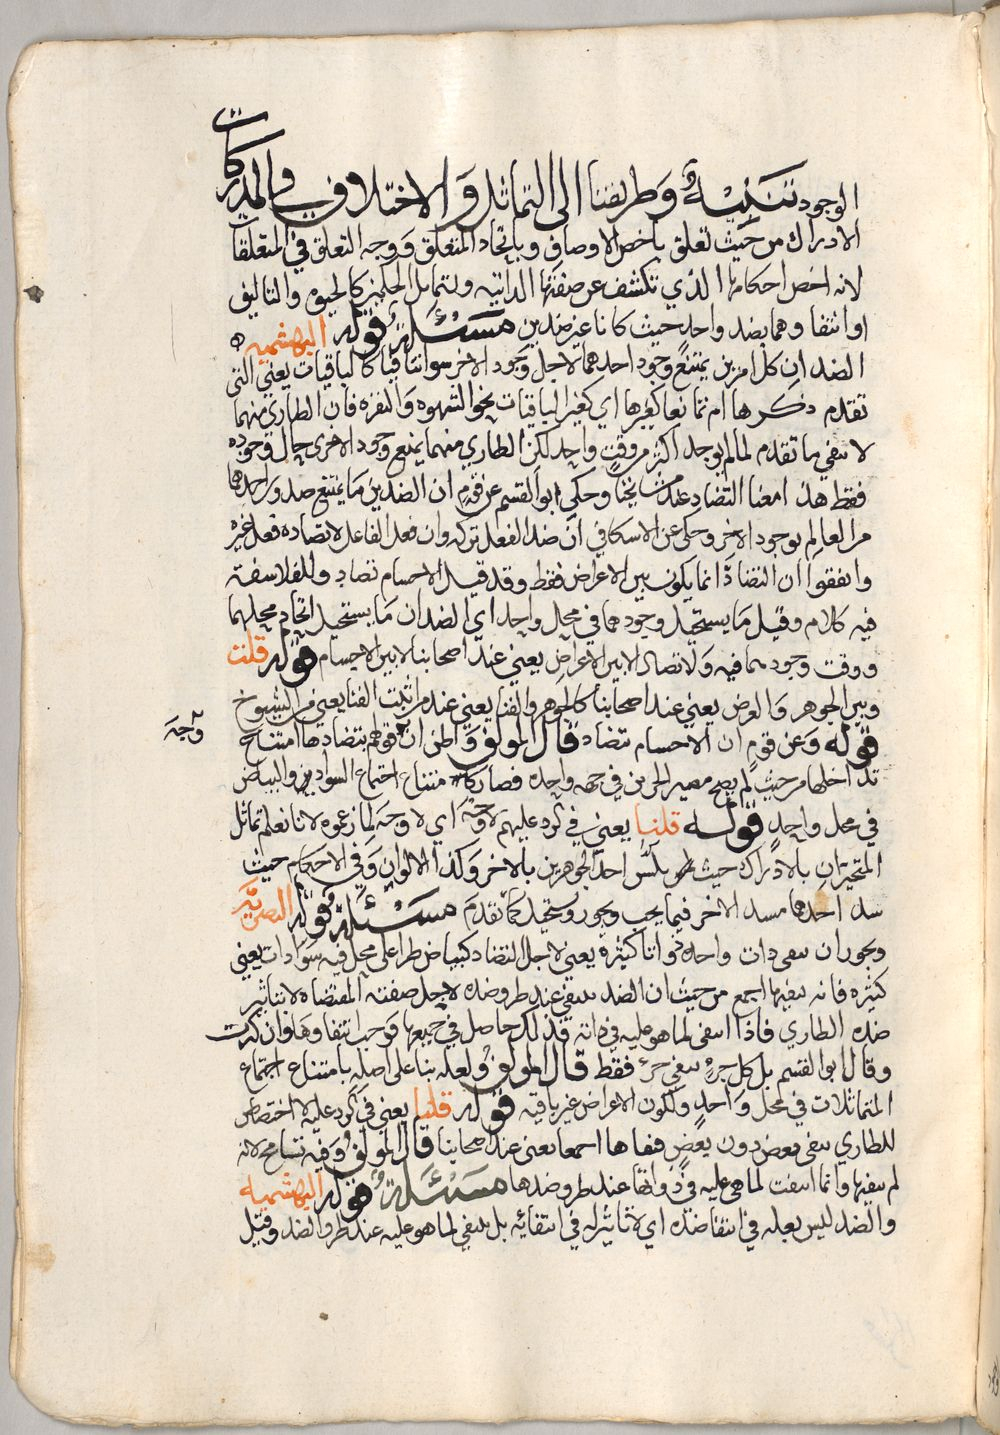 الوجود تنبيه وطريقنا الى التماثل والاختلاف في المدركات
الادراك من حيث تعلق باخص الاوصاف وباتحاد المتعلق ووجه التعلق في المتعلقات
لانه اخص احكامها الذي تكشف عن صفتها الذاتيه وبتماثل كالحيوه والتاليف
او انتفاوهما بضد واحد حيث كانا غير ضدين مسئلة قوله البهشميه
الضدان كل امرين يمتنع وجود احدهما لاجل وجود الاخر سوا تنافيا كالباقيات يعني التى
تقدم ذكرها ام تمانعا كغيرها اي كغير الباقيات نحو الشهوه والنفره فان الطاري منهما
لا ينفي ما تقدم لما لم يوجد اكثر من وقت واحد لكن الطاري منهما يمنع وجود الاخرى حال وجوده
فقط هذا معنا التضاد عند مشائخنا وحكي ابو القسم عن قوم ان الضدين ما يمتنع صدور احدهما
من العالم بوجود الاخر وحكى عن الاسكافي ان ضد الفعل تركه وان فعل الفاعل لا يضاده فعل غيره
واتفقوا ان التضاد انما يكون بين الاعراض فقط وقد قيل الاجسام تضاد وللفلاسفة
فيه كلام وقيل ما يستحيل وجودهما في محل واحد اي الضدان ما يستحيل اتحاد محلهما
ووقت وجودهما فيه ولا تضاد الا بين الاعراض يعني عند اصحابنا لا بين الاجسام قوله قلت
وبين الجوهر والعرض يعني عند اصحابنا كالجوهر والفنا يعني عند من اثبت الفنا يعني من الشيوخ
قوله وعن قوم ان الاجسام تتضاد قال المولف واظن ان قولهم بتضادها امتناع
وجه
تداخلها من حيث لم يصح مصير الجزين في جهه واحده فصار كامتناع اجتماع السوادين والبياض
في محل واحد قوله قلنا يعني في الرد عليهم لا وجه اي لا وجه لما زعموه لانا نعلم تماثل
المتحيزات بالادراك حيث يلتبس احد الجوهرين بالاخر وكذا الالوان وفي الاحكام حيث
سد احدهما مسد الاخر فيما يجب ويجوز ويستحيل كما تقدم مسئلة قوله البصرية
ويجوز ان ينفي ذات واحده ذواتا كثيرة يعني لاجل التضاد كبياض طرا على محل فيه سوادات يعني
كثيره فانه ينفيها اجمع من حيث ان الضد ينتفي عند طرو ضده لاجل صفته المقتضاه لا بتاثير
ضده الطاري فاذا انتفى لما هو عليه في ذاته فذلك حاصل في جميعها فوجب انتفاوها وان كثرت
وقال ابو القسم بل كل جزء ينفي جزء فقط قال المولف ولعله بنا على اصله بامتناع اجتماع
المتماثلات في محل واحد ولكون الاعراض غير باقيه قوله قلنا يعني في الرد عليه لا اختصاص
للطاري بنفي بعض دون بعض فنفاها اجمعا يعني عند اصحابنا قال المولف وفيه تسامح لانه
لم ينفيها وانما انتفت لما هي عليه في ذواتها عند طرو ضدها مسئلة قوله البهشميه
والضد ليس بعله في انتفا ضده اي لا تاثير له في انتفائه بل ينتفي لما هو عليه عند طرو الضد وقيل